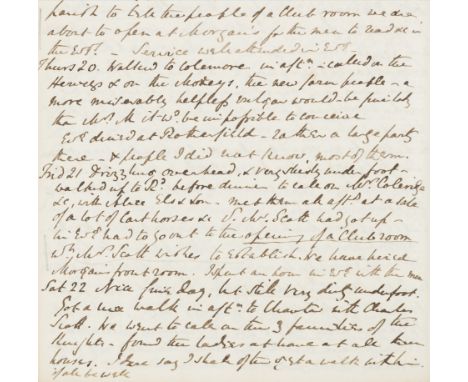 parish to tell the people of a Club room we are
about to open at Morgans for the men to read &c in
the Evg. - Service well attended in Evg -
Thurs 20. Walked to Colemore in aftn - called on the
Herveys & on the Mockeys, the new farm people - a
more miserably helpless vulgar would-be
the Mrs. M it wd. be impossible to conceive
Evg dined at Rotherfield - rather a large party
there - & people I did not know, most of them.
Frid 21 Drizzling overhead, & very underfoot -
walked up to before dinner to call on Mrs. Coleridge
&c, with Alice & Son. met them all aftn at a sale
of a lot of cart horses &c Mr. Scott had got up -
in Evg had to go out to the opening of a Club room
wh. Mr. Scott wishes to establish. We have hired
Morgans front room. I spent an hour in Evg with the men
Sat 22 Nice fine day, but still very dirty underfoot.
Got a nice walk in aftn to Chawton with Charles
Scott. We went to call on the 3 families of the
Knights - found the ladies at home at all three
houses. I dare say I shall often get a walk with him
if all be well